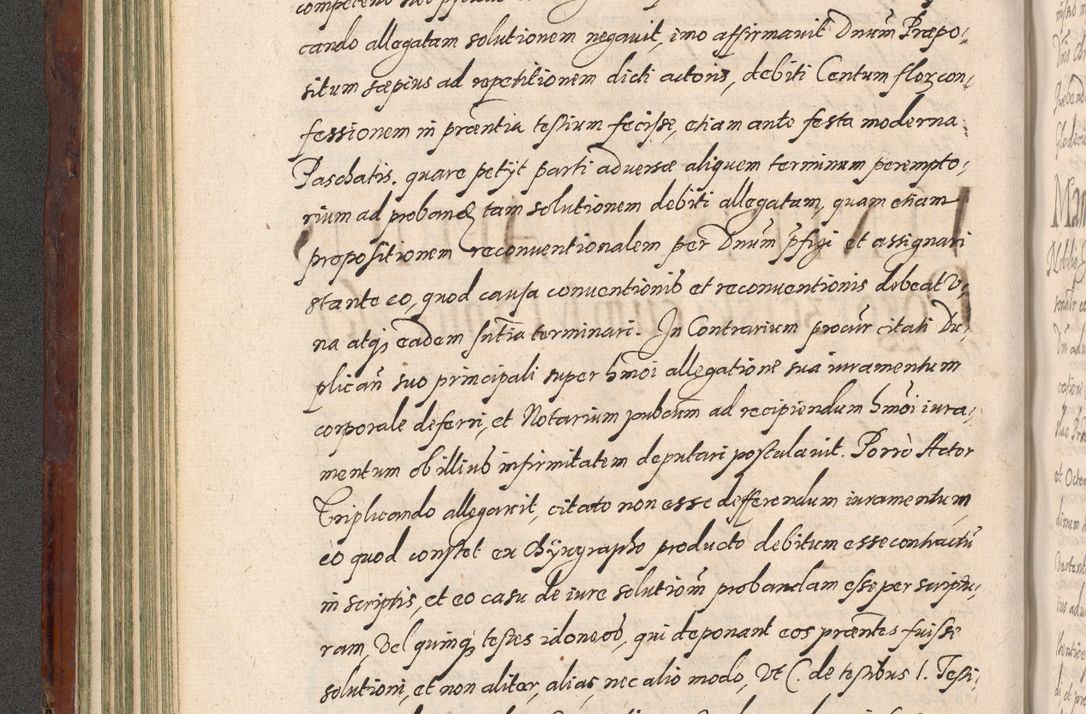 cando allegatam solutionem negauit, imo affirmauit Dnum Præpo,
situm sæpius ad repetitionem dicti actoris, debiti Centum flor con,
fessionem in præntia testium fecisse, etiam ante festa moderna
Paschatis. quare petijt parti aduersæ aliquem terminum perempto,
rium ad proband tam solutionem debiti allegatam, quam etiam
propositionem reconuentionalem per Dnum pfigi et assignari
stante eo, quod causa conuentionis et reconuentionis debeat v,
na atq, eadem sntia terminari. In Contrarium procur citati Du,
plican suo principali super hmoi allegatione sua iuramentum
corporale deferri, et Notarium pubcum ad recipiendum hmoi iura,
mentum ob illius infirmitatem deputari postulauit. Porrò Actor
Triplicando allegauit, citato non esse defferendum iuramentum
eo quod constet ex Chyrographo producto debitum esse contractu
in scriptis, et eo casu de iure solutiom probandam esse per scriptu,
ram, vel quinq, testes idoneos, qui deponant eos præntes fuisse
solutioni, et non aliter, alias nec alio modo, vt C. de testibus l. Testi,